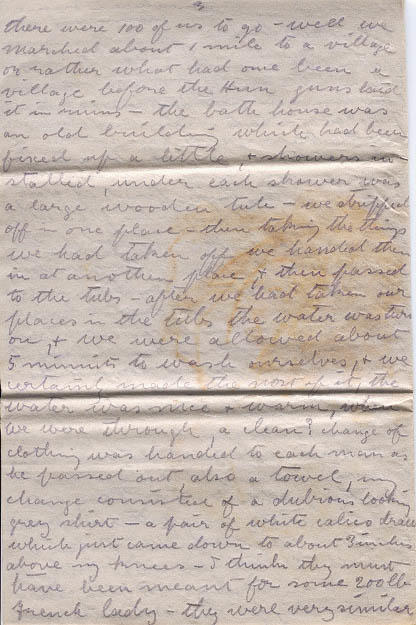 3
there were 100 of us to go - well we
marched about 1 mile to a village
or rather what had one been a
village before the Hun guns laid
it in ruins - the bath house was
an old building which had been
fixed up a little, + showers in
stalled, under each shower was
a large wooden tub - we stripped
off in one place - then taking the things
we had taken off we handed them
in at another place + then passed
to the tubs - after we had taken our
places in the tubs the water was turn
on, + we were allowed about
5 minuits to wash ourselves, + we
certainly made the most of it, the
water was nice + warm, when
we were through, a clean? change of
clothing was handed to each man as
he passed out, also a towel, my
change consisted of a dubious looking
grey shirt - a pair of white calico draws
which just came down to about 3 inches
above my knees - I think they must
have been meant for some 200 lb
French lady - they were very similar